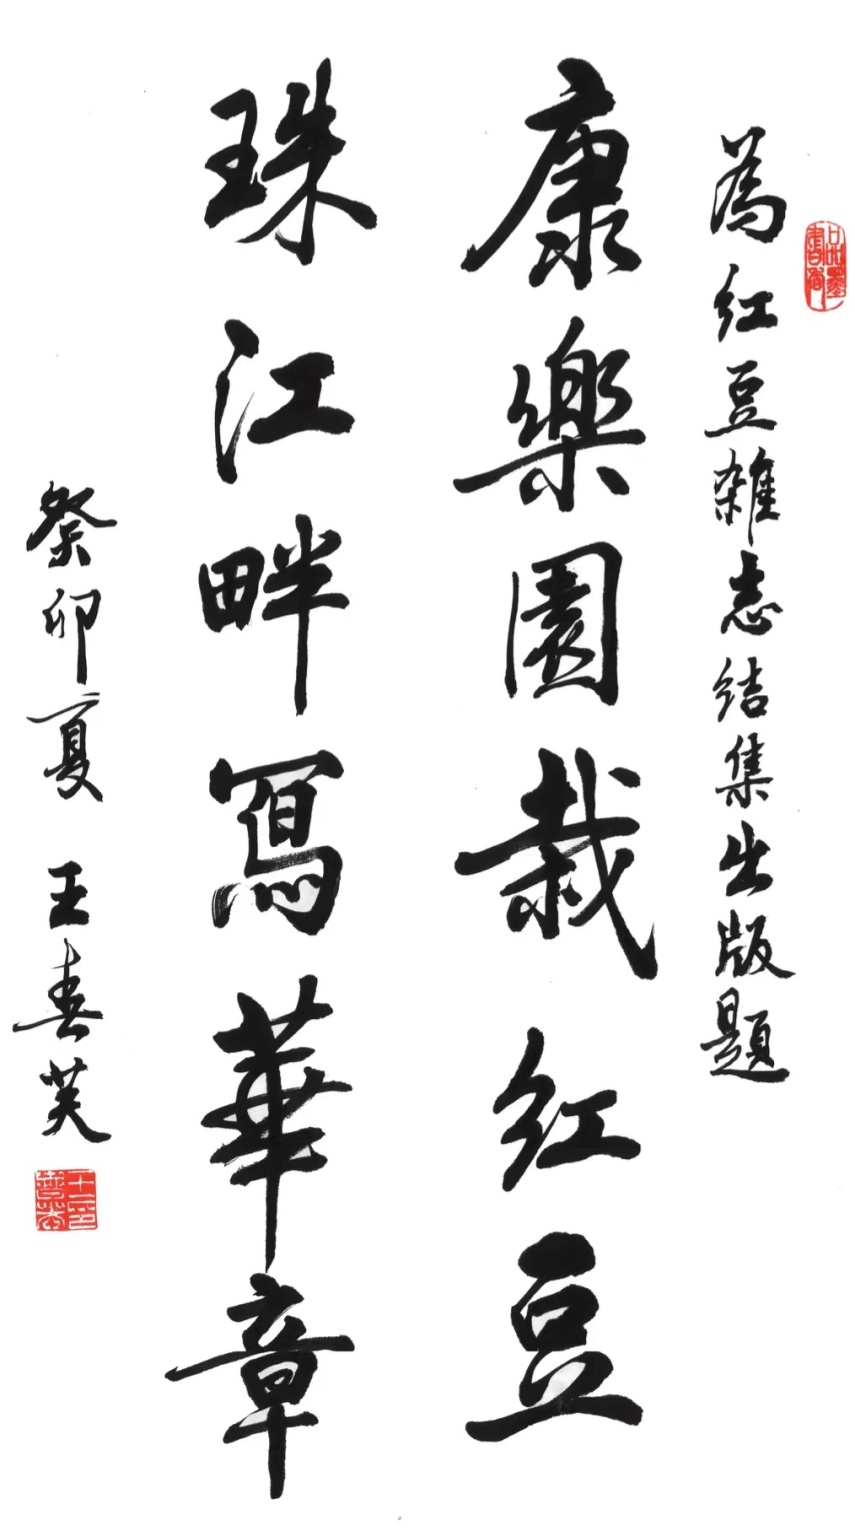 为红豆雜志结集出版题
康樂園栽红豆
珠江畔寫華章
癸卯夏 王春芙